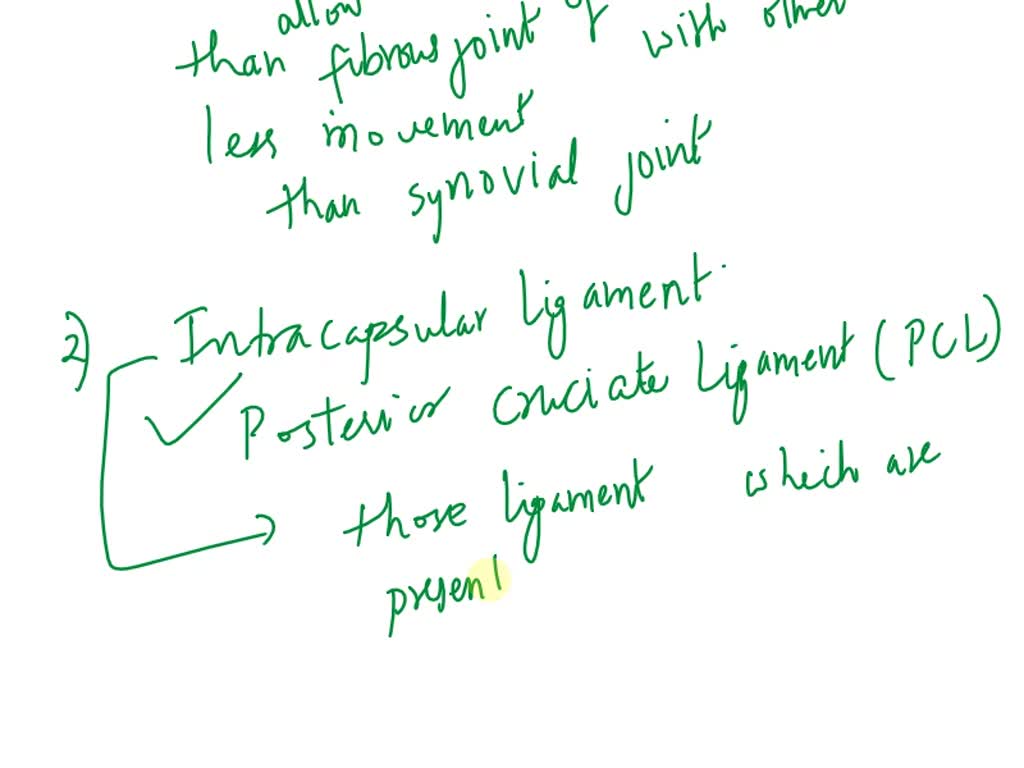 allow
than fibrous joint & with other
less movement
than synovial joint
2) Intracapsular Ligament.
Posterior Cruciate Ligament (PCL)
those ligament which are
present